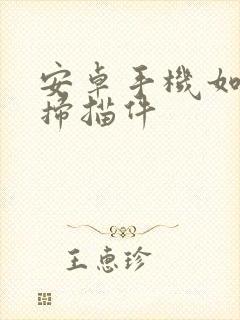 安卓手機如
掃描件
王惠珍